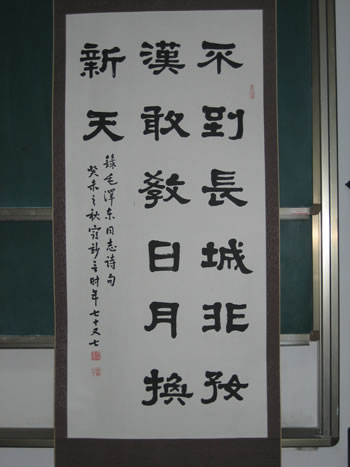 不到長城非好
漢敢教日月換
新天
錄毛澤东同志诗句
癸未之秋 时年七十又七